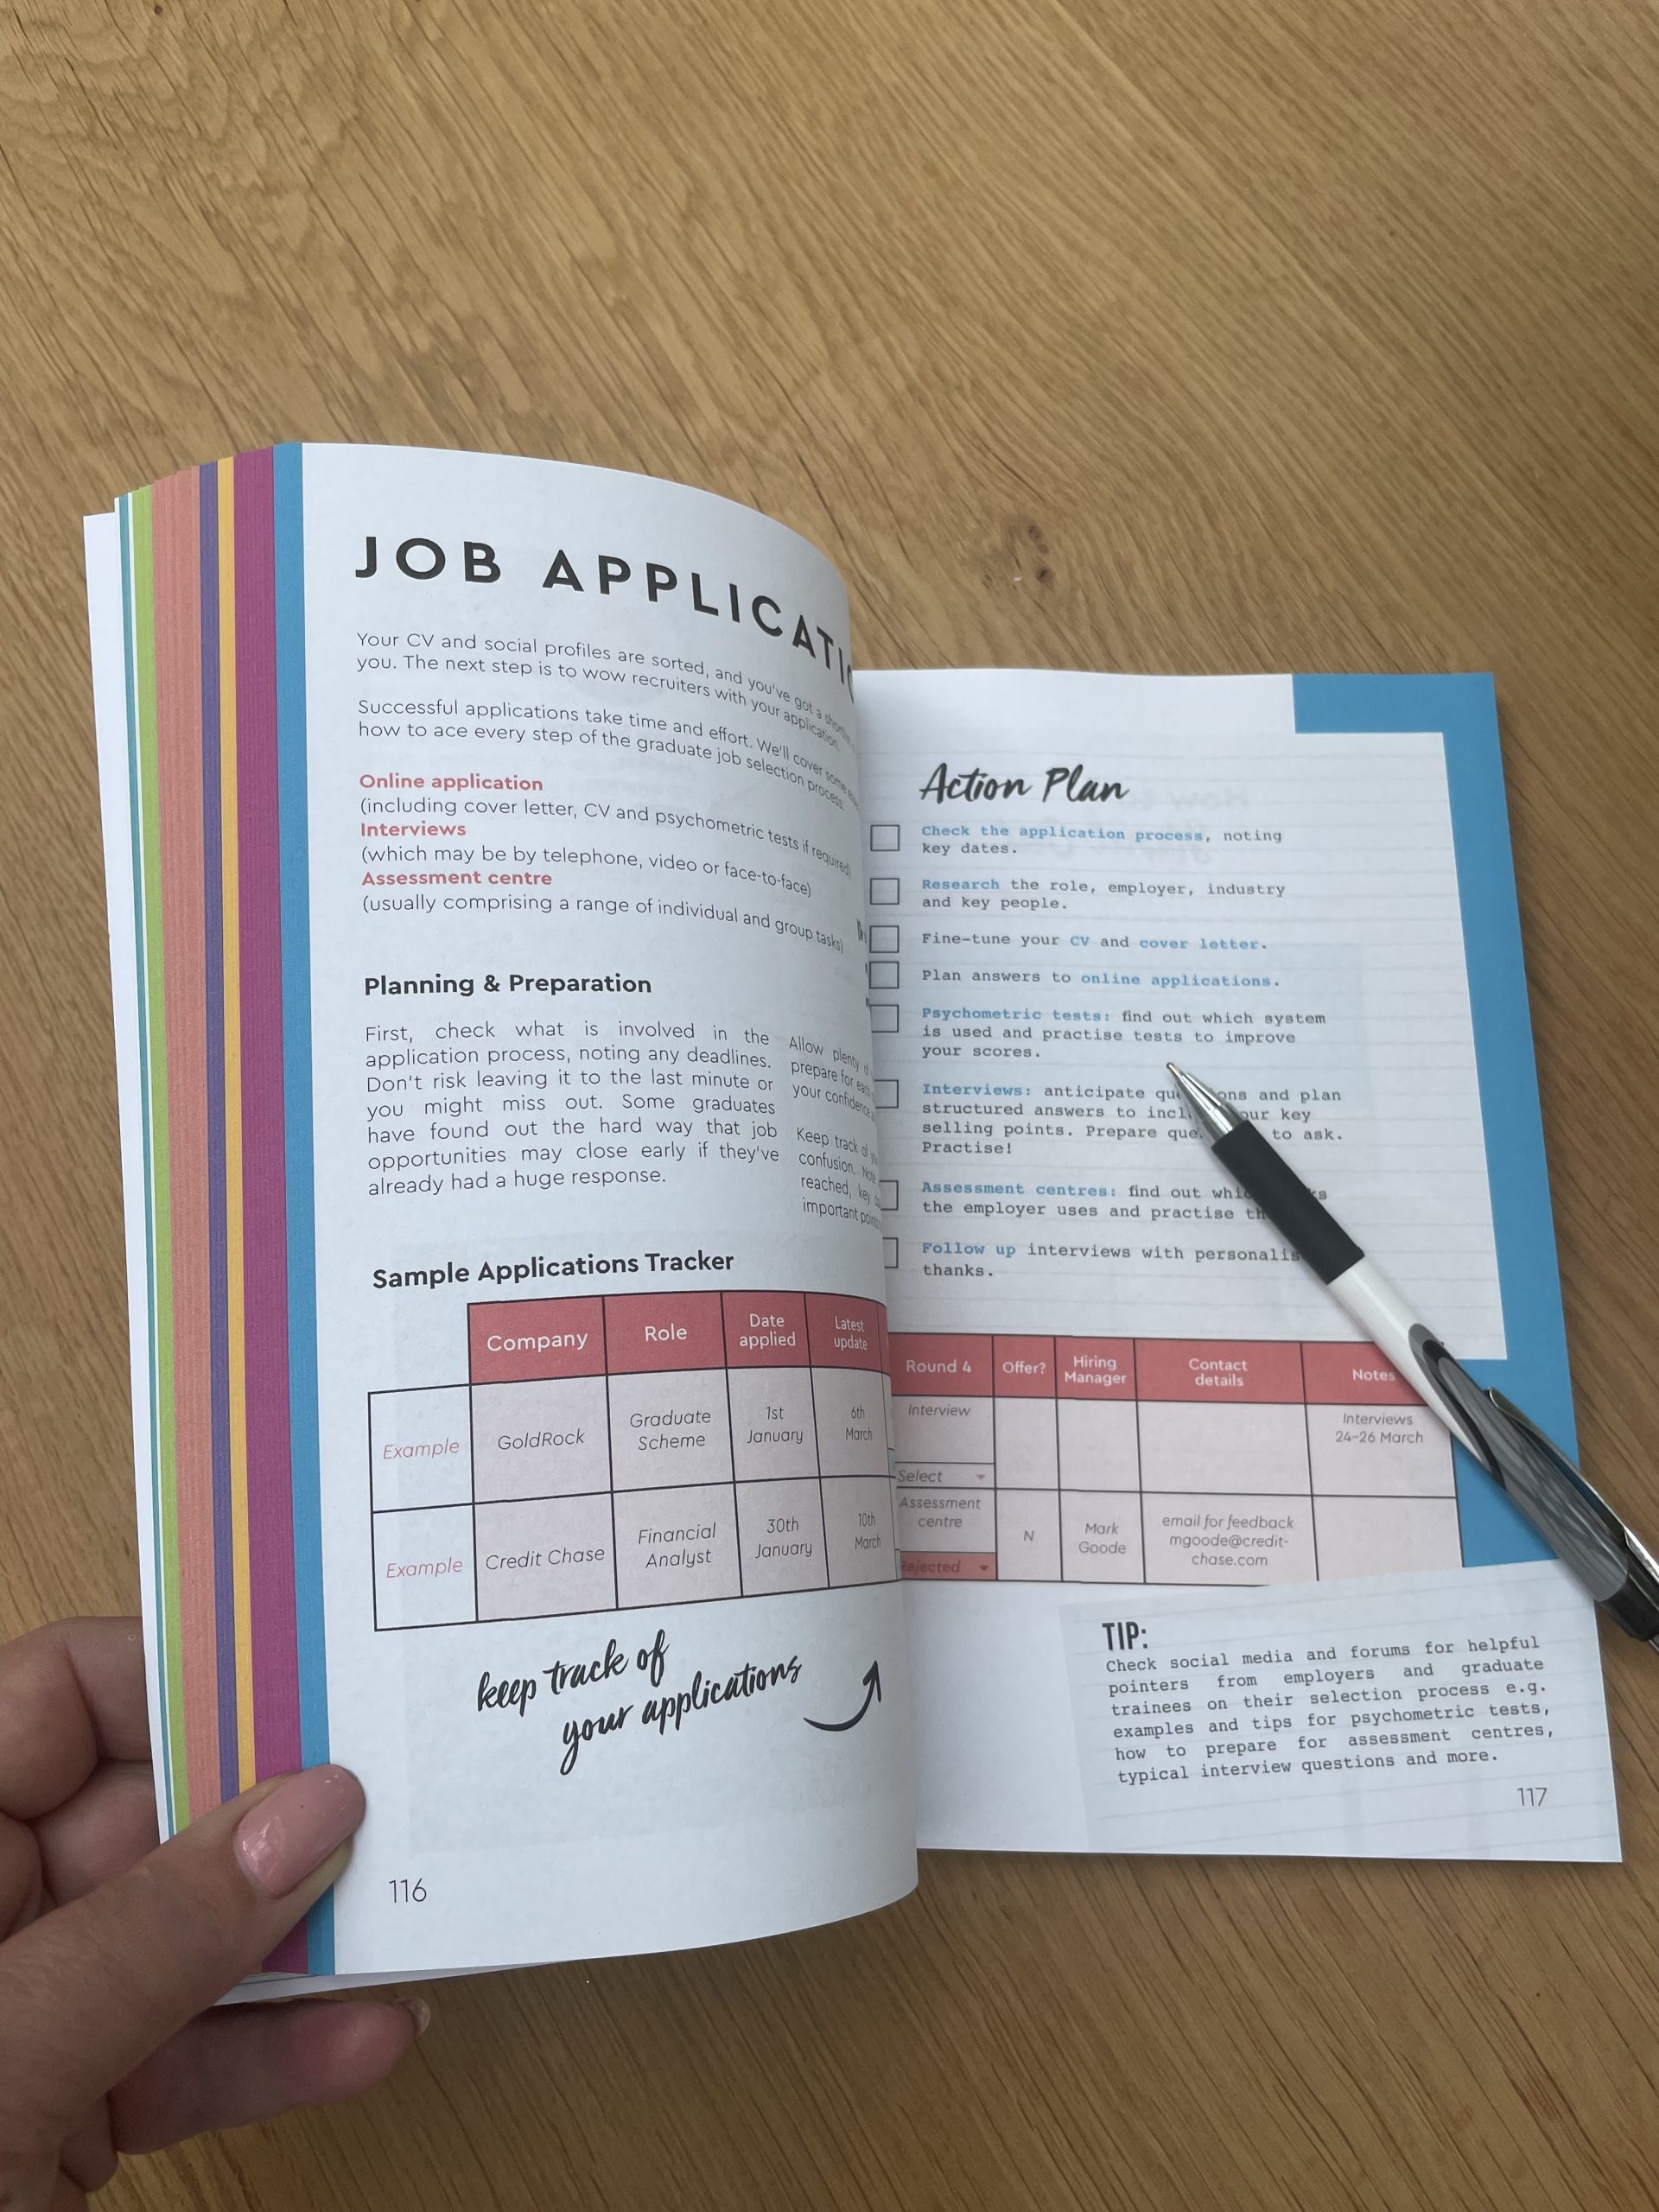 JOB APPLICATIO
Your CV and social profiles are sorted, and you've got a
you. The next step is to wow recruiters with your application.
Successful applications take time and effort. We'll cover some
how to ace every step of the graduate job selection process:
Online application
(including cover letter, CV and psychometric tests if required)
Interviews
(which may be by telephone, video or face-to-face)
Assessment centre
(usually comprising a range of individual and group tasks)
Planning & Preparation
First, check what is involved in the
application process, noting any deadlines.
Don't risk leaving it to the last minute or
you might miss out. Some graduates
have found out the hard way that job
opportunities may close early if they've
already had a huge response.
Allow plenty
prepare for
your confidence
Keep track of
confusion.
reached, key
important
Sample Applications Tracker
Company Role Date applied Latest update
Example GoldRock Graduate Scheme 1st January 6th March
Example Credit Chase Financial Analyst 30th January 10th March
keep track of
your applications
116
Action Plan
Check the application process, noting
key dates.
Research the role, employer, industry
and key people.
Fine-tune your CV and cover letter.
Plan answers to online applications.
Psychometric tests: find out which system
is used and practise tests to improve
your scores.
Interviews: anticipate and plan
structured answers to key
selling points. Prepare to ask.
Practise!
Assessment centres: find out
the employer uses and practise
Follow up interviews with
thanks.
Round 4 Offer? Hiring Manager Contact details Notes
Interview Interviews 24-26 March
Select
Assessment centre N Mark Goode email for feedback mgoode@credit-chase.com
Rejected
TIP:
Check social media and forums for helpful
pointers from employers and graduate
trainees on their selection process e.g.
examples and tips for psychometric tests,
how to prepare for assessment centres,
typical interview questions and more.
117